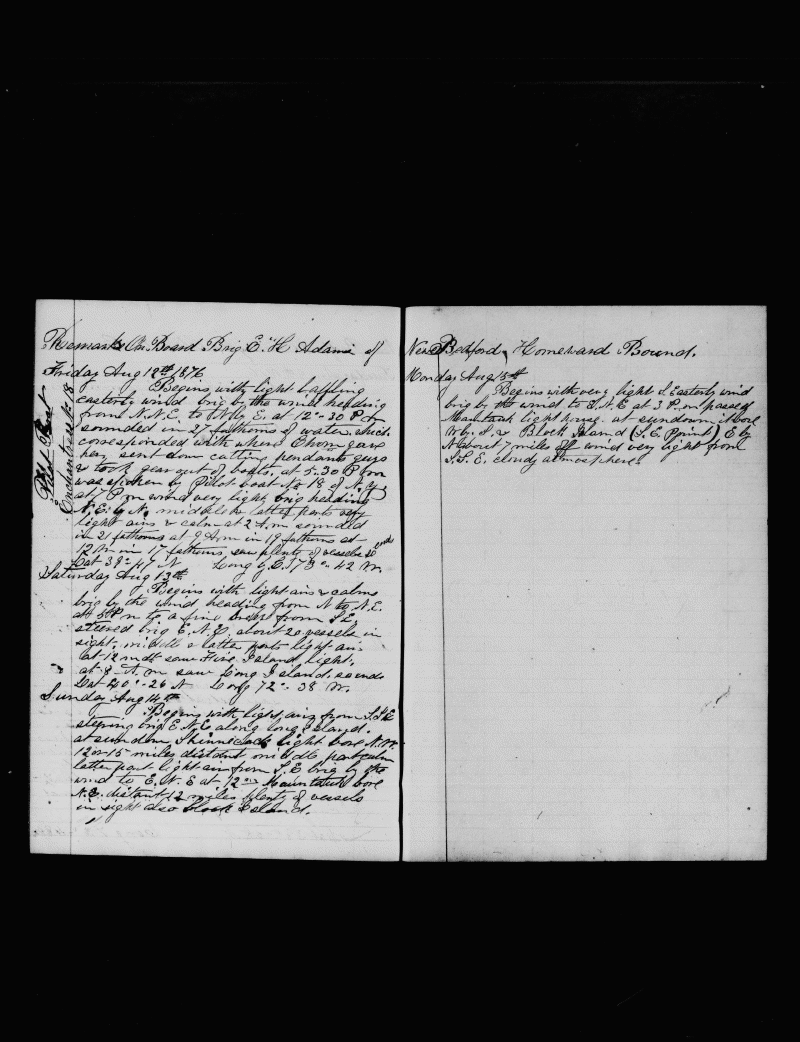 Remarks On Board Brig E. H. Adams of
Friday Aug 12th 1876
Begins with light baffling
easterly wind brig by the wind heading
from N.N.E. to N by E. at 12"-30 P.m
sounded in 27 fathoms of water which
corresponded with where Chron gave
her, sent down cutting pendants guys
& took gear out of boats, at 5-30 P m
was spoken by Pilot boat No 18 of N.Y
at 7 P.m wind very light brig heading
N.E. by N. middle & latter parts very
light airs & calm at 2 A.m sounded
in 21 fathoms at 9 A.m in 19 fathoms at
12 M in 17 fathoms saw plenty of vessels
Lat 39"-47 N Long by C. 73"-42 W.
Pilot Boat
No 18
Saturday Aug 13th
Begins with light airs & calms
brig by the wind heading from N to N.E.
at P m to a fine from S.E.
steered brig E.N.E. about 20 vessels in
sight, middle & latter parts light air
at 12 mdt saw Fire Island light,
at 8 A.m saw Long Island.
Lat 40"-26 N Long 72"-38 W.
Sunday Aug 14th
Begins with light airs from S.S.E
steering brig E.N.E along long island.
at sundown Shinnecock light bore N.W.
12 or 15 miles distant middle part calm
latter part light air from S.E brig by the
wind to E.N.E at 12 M bore
N.E. distant 12 miles plenty of vessels
in sight also block Island.
New Bedford, Homeward Bound.
Monday Aug 15th
Begins with very light S.Easterly wind
brig by the wind to E.N.E at 3 P.m passed
Mauntauk light house. at sundown it bore
W by S. & Block Island (S.E. Ppoint) E by
N about 7 miles off wind very light from
S.S.E. cloudy atmosphere.